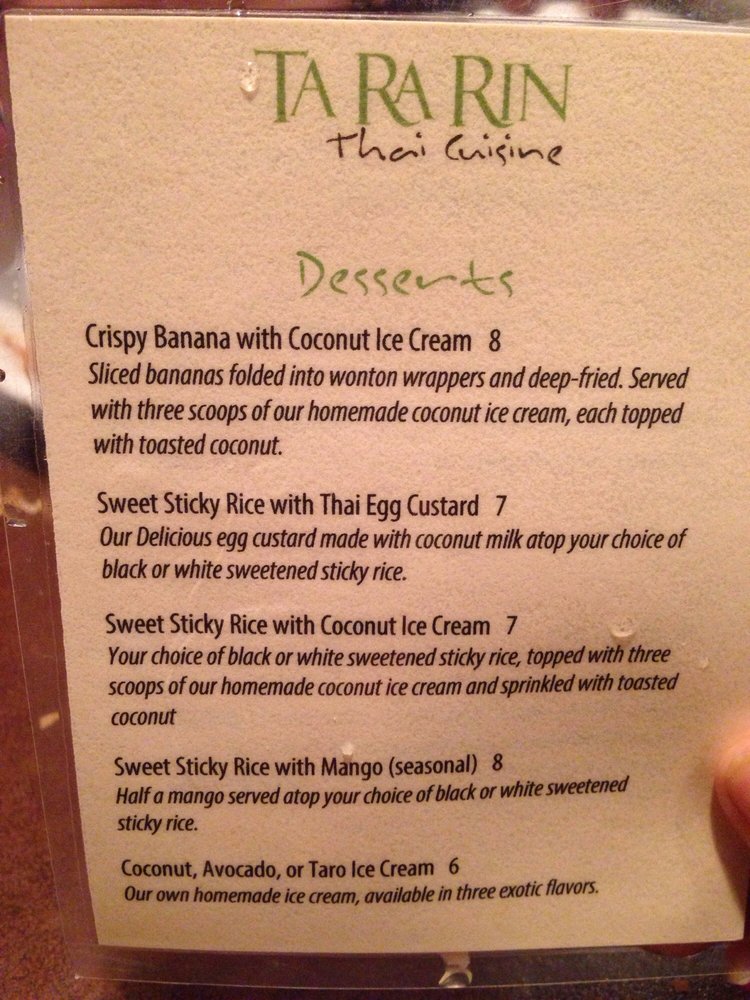 TA RA RIN
Thai Cuisine
Desserts
Crispy Banana with Coconut Ice Cream 8
Sliced bananas folded into wonton wrappers and deep-fried. Served
with three scoops of our homemade coconut ice cream, each topped
with toasted coconut.
Sweet Sticky Rice with Thai Egg Custard 7
Our Delicious egg custard made with coconut milk atop your choice of
black or white sweetened sticky rice.
Sweet Sticky Rice with Coconut Ice Cream 7
Your choice of black or white sweetened sticky rice, topped with three
scoops of our homemade coconut ice cream and sprinkled with toasted
coconut
Sweet Sticky Rice with Mango (seasonal) 8
Half a mango served atop your choice of black or white sweetened
sticky rice.
Coconut, Avocado, or Taro Ice Cream 6
Our own homemade ice cream, available in three exotic flavors.